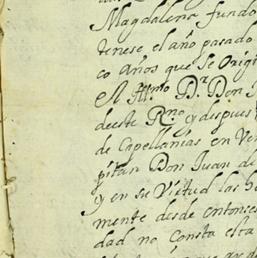 Magdalena fundo
tenese el año pasado
co años que se Origi
el Yllmo Dr. Don
deeste Rno, y despues
de Capellanias en Ver
pitan Don Juan de
y en su Virtud las h
mente desde entonses
dad no Consta esta